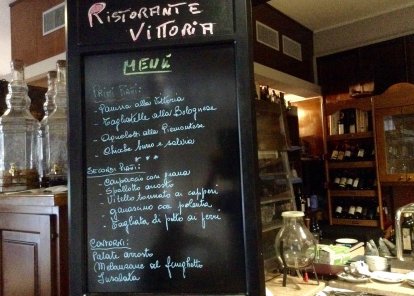 RISTORANTE
VITTORIA
MENÚ
PRIMI PIATTI:
- Panna alla Vittoria
- Tagliatelle alla Bolognese
- Agnolotti alla Piemontese
- burro e salvia
SECONDI PIATTI:
- Carpaccio con grana
- arrosto
- Vitello tonnato ai capperi
- con polenta
- Tagliata di pollo ai ferri
CONTORNI:
Patate arrosto
Melanzane al funghetto
Insalata